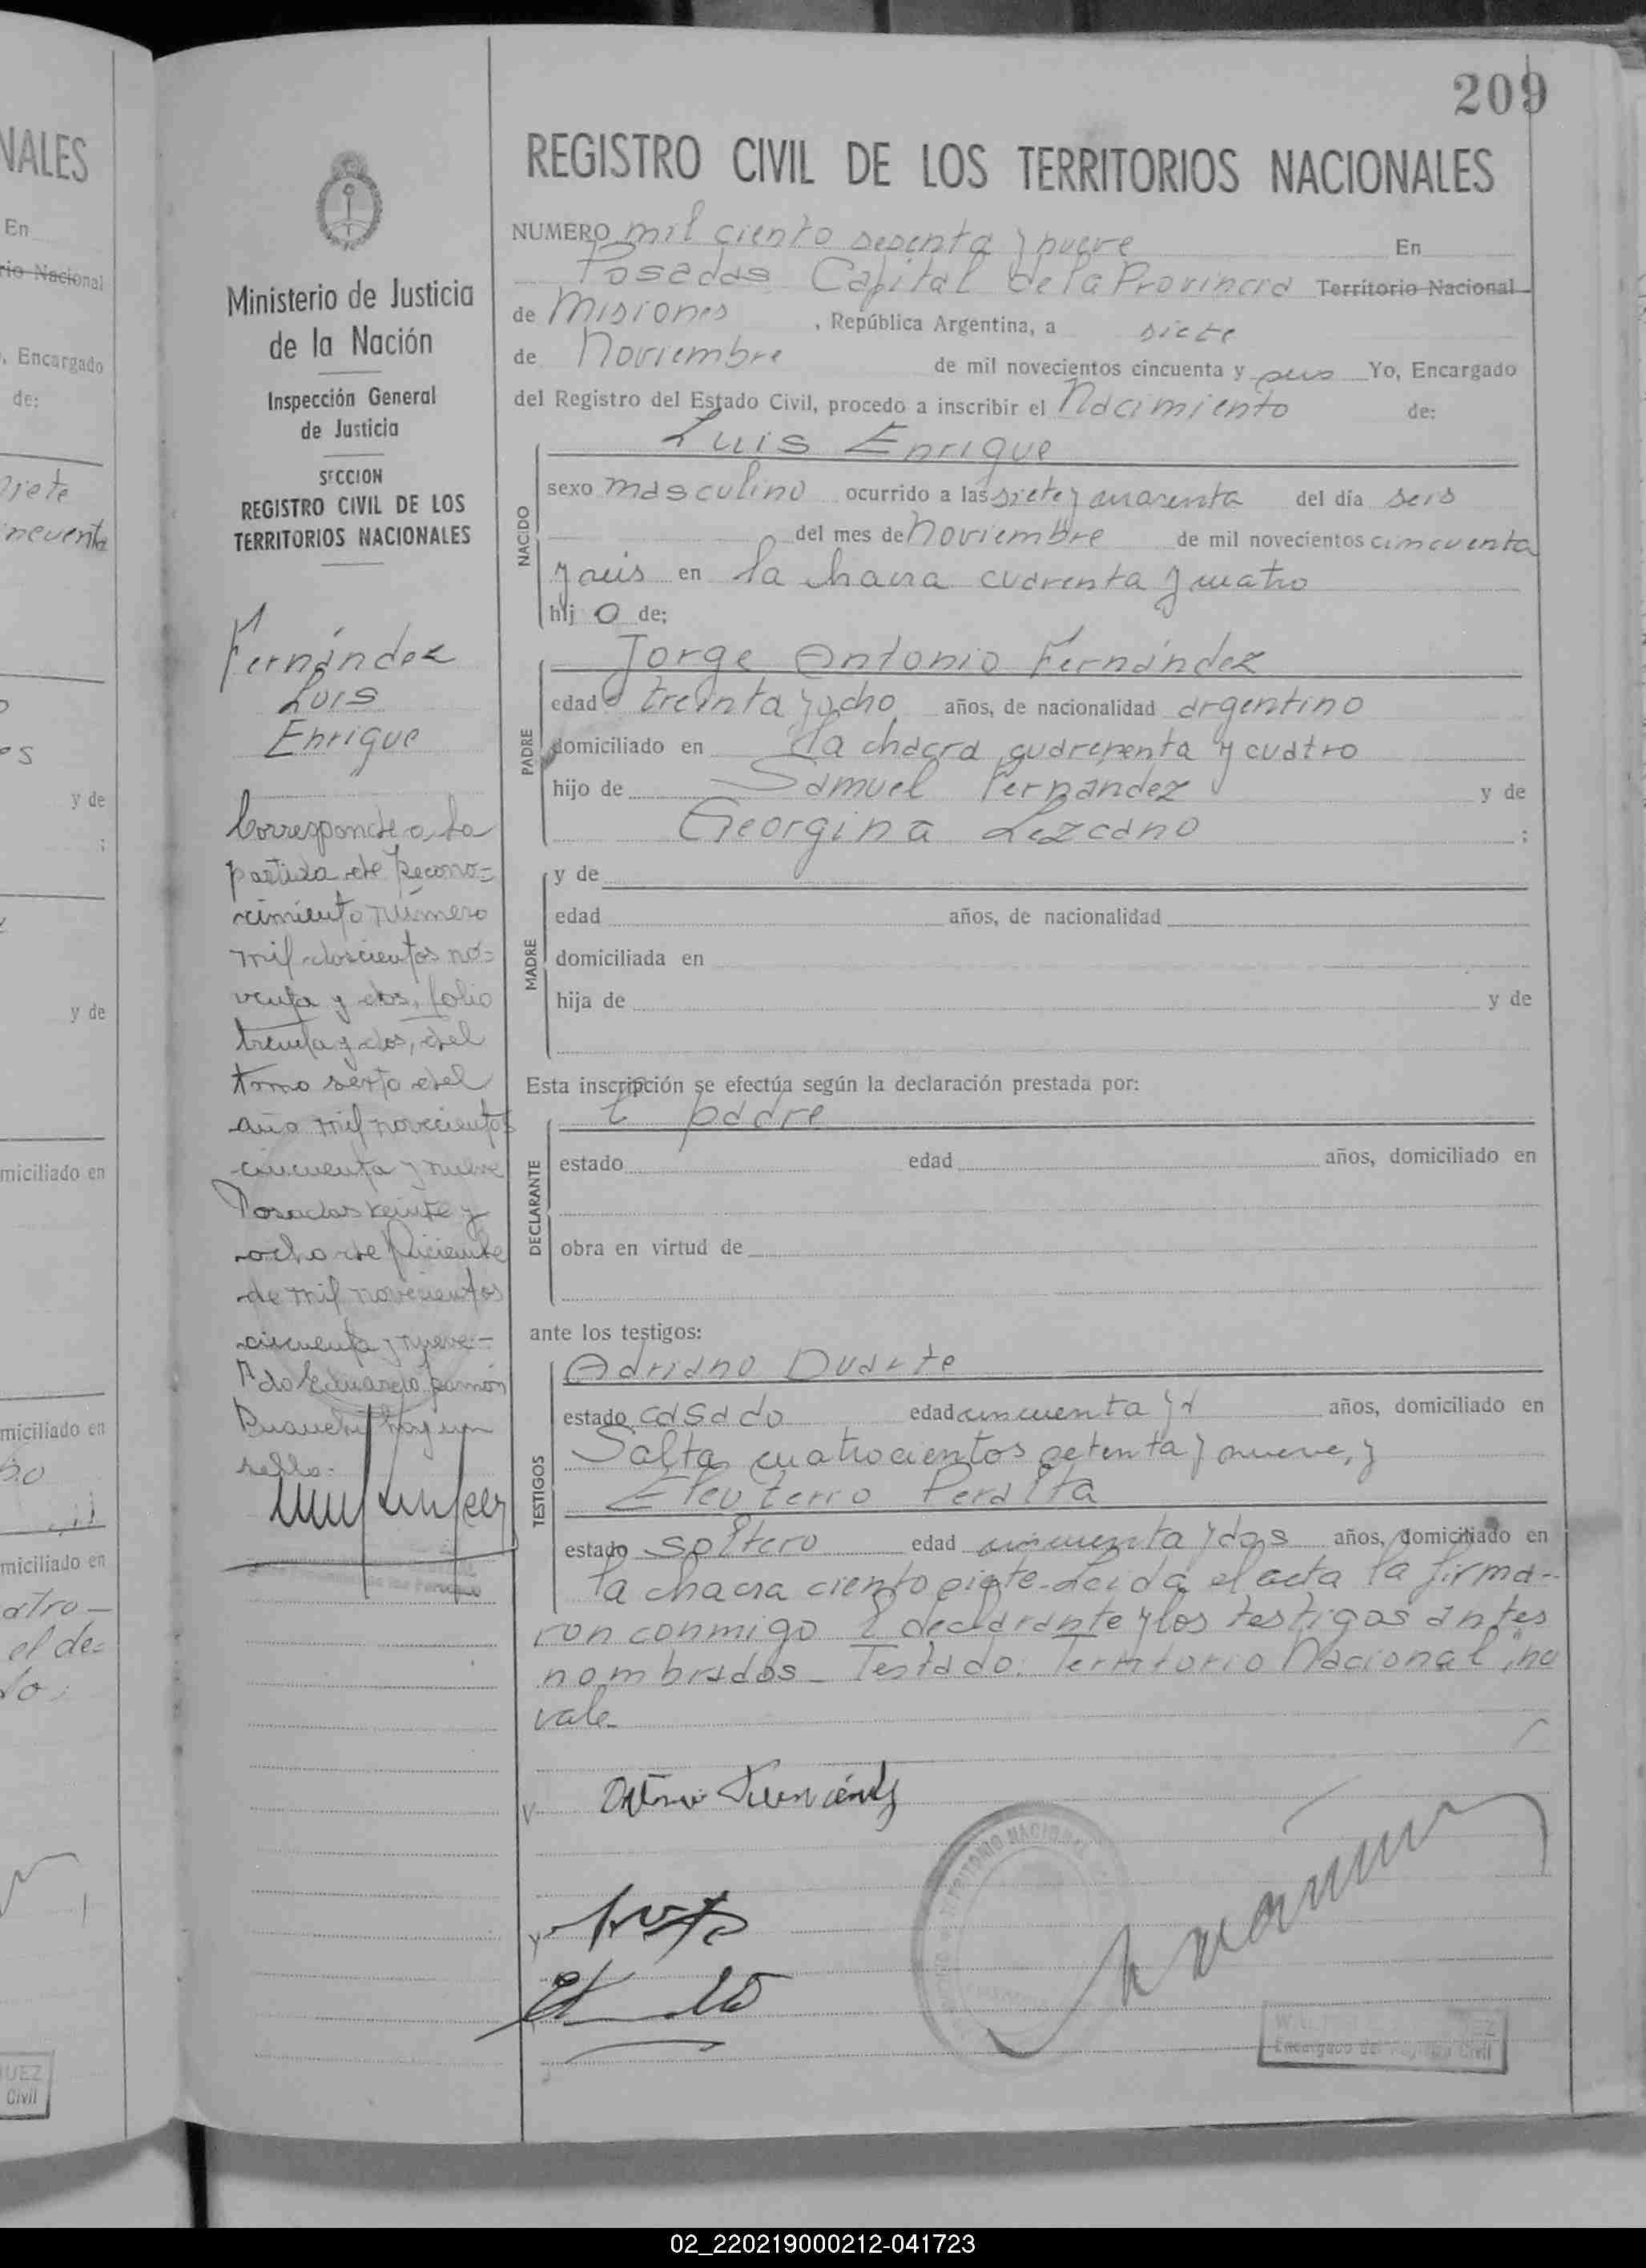 NALES
En
rio Nacional
, Encargado
de:
siete
ncuenta
y de
;
y de
miciliado en
miciliado en
miciliado en
atro —
el de=
UEZ
Civil
209
REGISTRO CIVIL DE LOS TERRITORIOS NACIONALES
Ministerio de Justicia
de la Nación
Inspección General
de Justicia
SECCION
REGISTRO CIVIL DE LOS
TERRITORIOS NACIONALES
Fernández
Luis
Enrique
Corresponde a la
partida de Recono=
cimiento número
mil doscientos no=
venta y dos, folio
treinta y dos, del
tomo sexto del
año mil novecientos
cincuenta y nueve
Posadas veinte y
ocho de Diciembre
de mil novecientos
cincuenta y nueve.-
Fdo Eduardo Ramón
hay un
sello.-
NUMERO mil ciento sesenta y nueve En
Posadas Capital de la Provincia Territorio Nacional
de Misiones , República Argentina, a siete
de Noviembre de mil novecientos cincuenta y seis Yo, Encargado
del Registro del Estado Civil, procedo a inscribir el Nacimiento de:
NACIDO
Luis Enrique
sexo masculino ocurrido a las siete y cuarenta del día seis
del mes de Noviembre de mil novecientos cincuenta
y seis en la chacra cuarenta y cuatro
hij o de;
PADRE
Jorge Antonio Fernández
edad treinta y ocho años, de nacionalidad argentino
domiciliado en la chacra cuarenta y cuatro
hijo de Samuel Fernández y de
Georgina Lezcano ;
MADRE
y de
edad años, de nacionalidad
domiciliada en
hija de y de
Esta inscripción se efectúa según la declaración prestada por:
DECLARANTE
el padre
estado edad años, domiciliado en
obra en virtud de
ante los testigos:
TESTIGOS
Adriano Duarte
estado casado edad cincuenta y años, domiciliado en
Salta cuatrocientos setenta y nueve, y
Eleuterio Peralta
estado soltero edad cincuenta y dos años, domiciliado en
la chacra ciento siete. Leida el acta la firma-
ron conmigo el declarante y los testigos antes
nombrados - Testado: Territorio Nacional, no
vale.
TERRITORIO NACIONAL
Encargado del Registro Civil
02_220219000212-041723